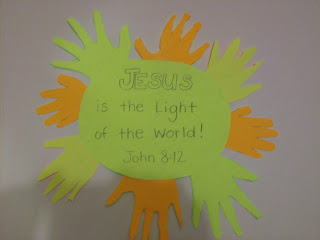 JESUS
is the Light
of the World!
John 8:12